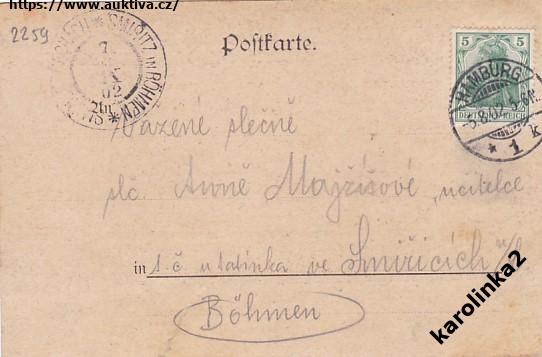 https://www.auktiva.cz/
2259
SMIRITZ in BÖHMEN
7.
IX
02
Postkarte.
5
DEUTSCHES REICH
HAMBURG
5.9.02. 5-6N.
* 1 k
Vážené slečně
slč. Anně Majžišové, učitelce
in t. č. u tatínka ve Smiřicích n/L
Böhmen
karolinka2